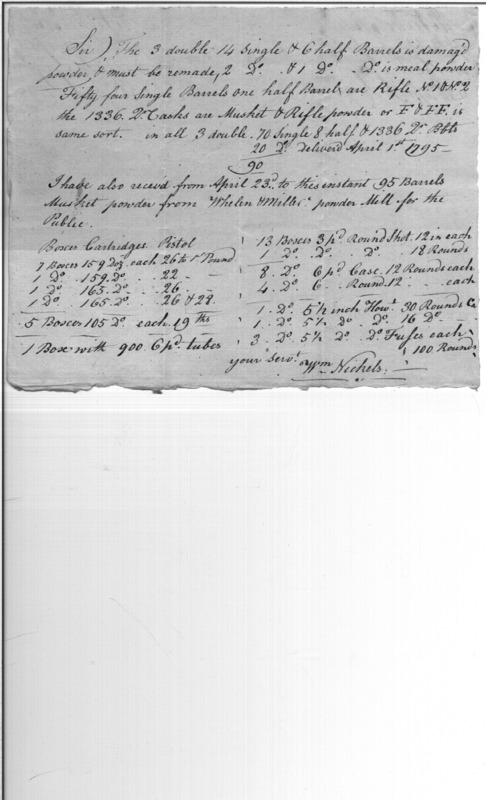 Sir) The 3 double 14 Single & 6 half Barrels is damagd
powder, & must be remade, 2 Do. & 1 Do. Do. is meal powder
Fifty four Single Barrels one half Barrel are Rifle No 1 & No 2
the 1336. Qr Casks are Musket & Rifle powder or F & FF. is
same sort. in all 3 double. 70 Single 8 half & 1336 Qr Bbls
20 Do. Deliverd April 1st 1795
90
I have also receivd from April 23d. to this instant 95 Barrels
Musket powder from Whelen & Miller powder Mill for the
Public.
Boxes Cartridges. Pistol
7 Boxes 159 Doz. each 26 to 1 Pound
1 Do. 159. Do. .. 22 -
1 Do. 163. Do. .. 26 -
1 Do. 165. Do. .. 26 & 28.
5 Boxes 105 Do. each 19 ths
1 Box with 900 6 pd. tubes
13 Boxes 3 pd Round Shot. 12 in each
1 Do. Do. Do. 18 Rounds
8 Do 6 pd Case. 12 Rounds each
4 Do. 6 . Round. 12 . each
1. Do. 5½ inch Howr. 30 Rounds
1. Do 5½ Do Do. 16 Do.
3 . Do 5½ Do. Do Fuses each
100 Rounds
your Servt. Wm Nichols.